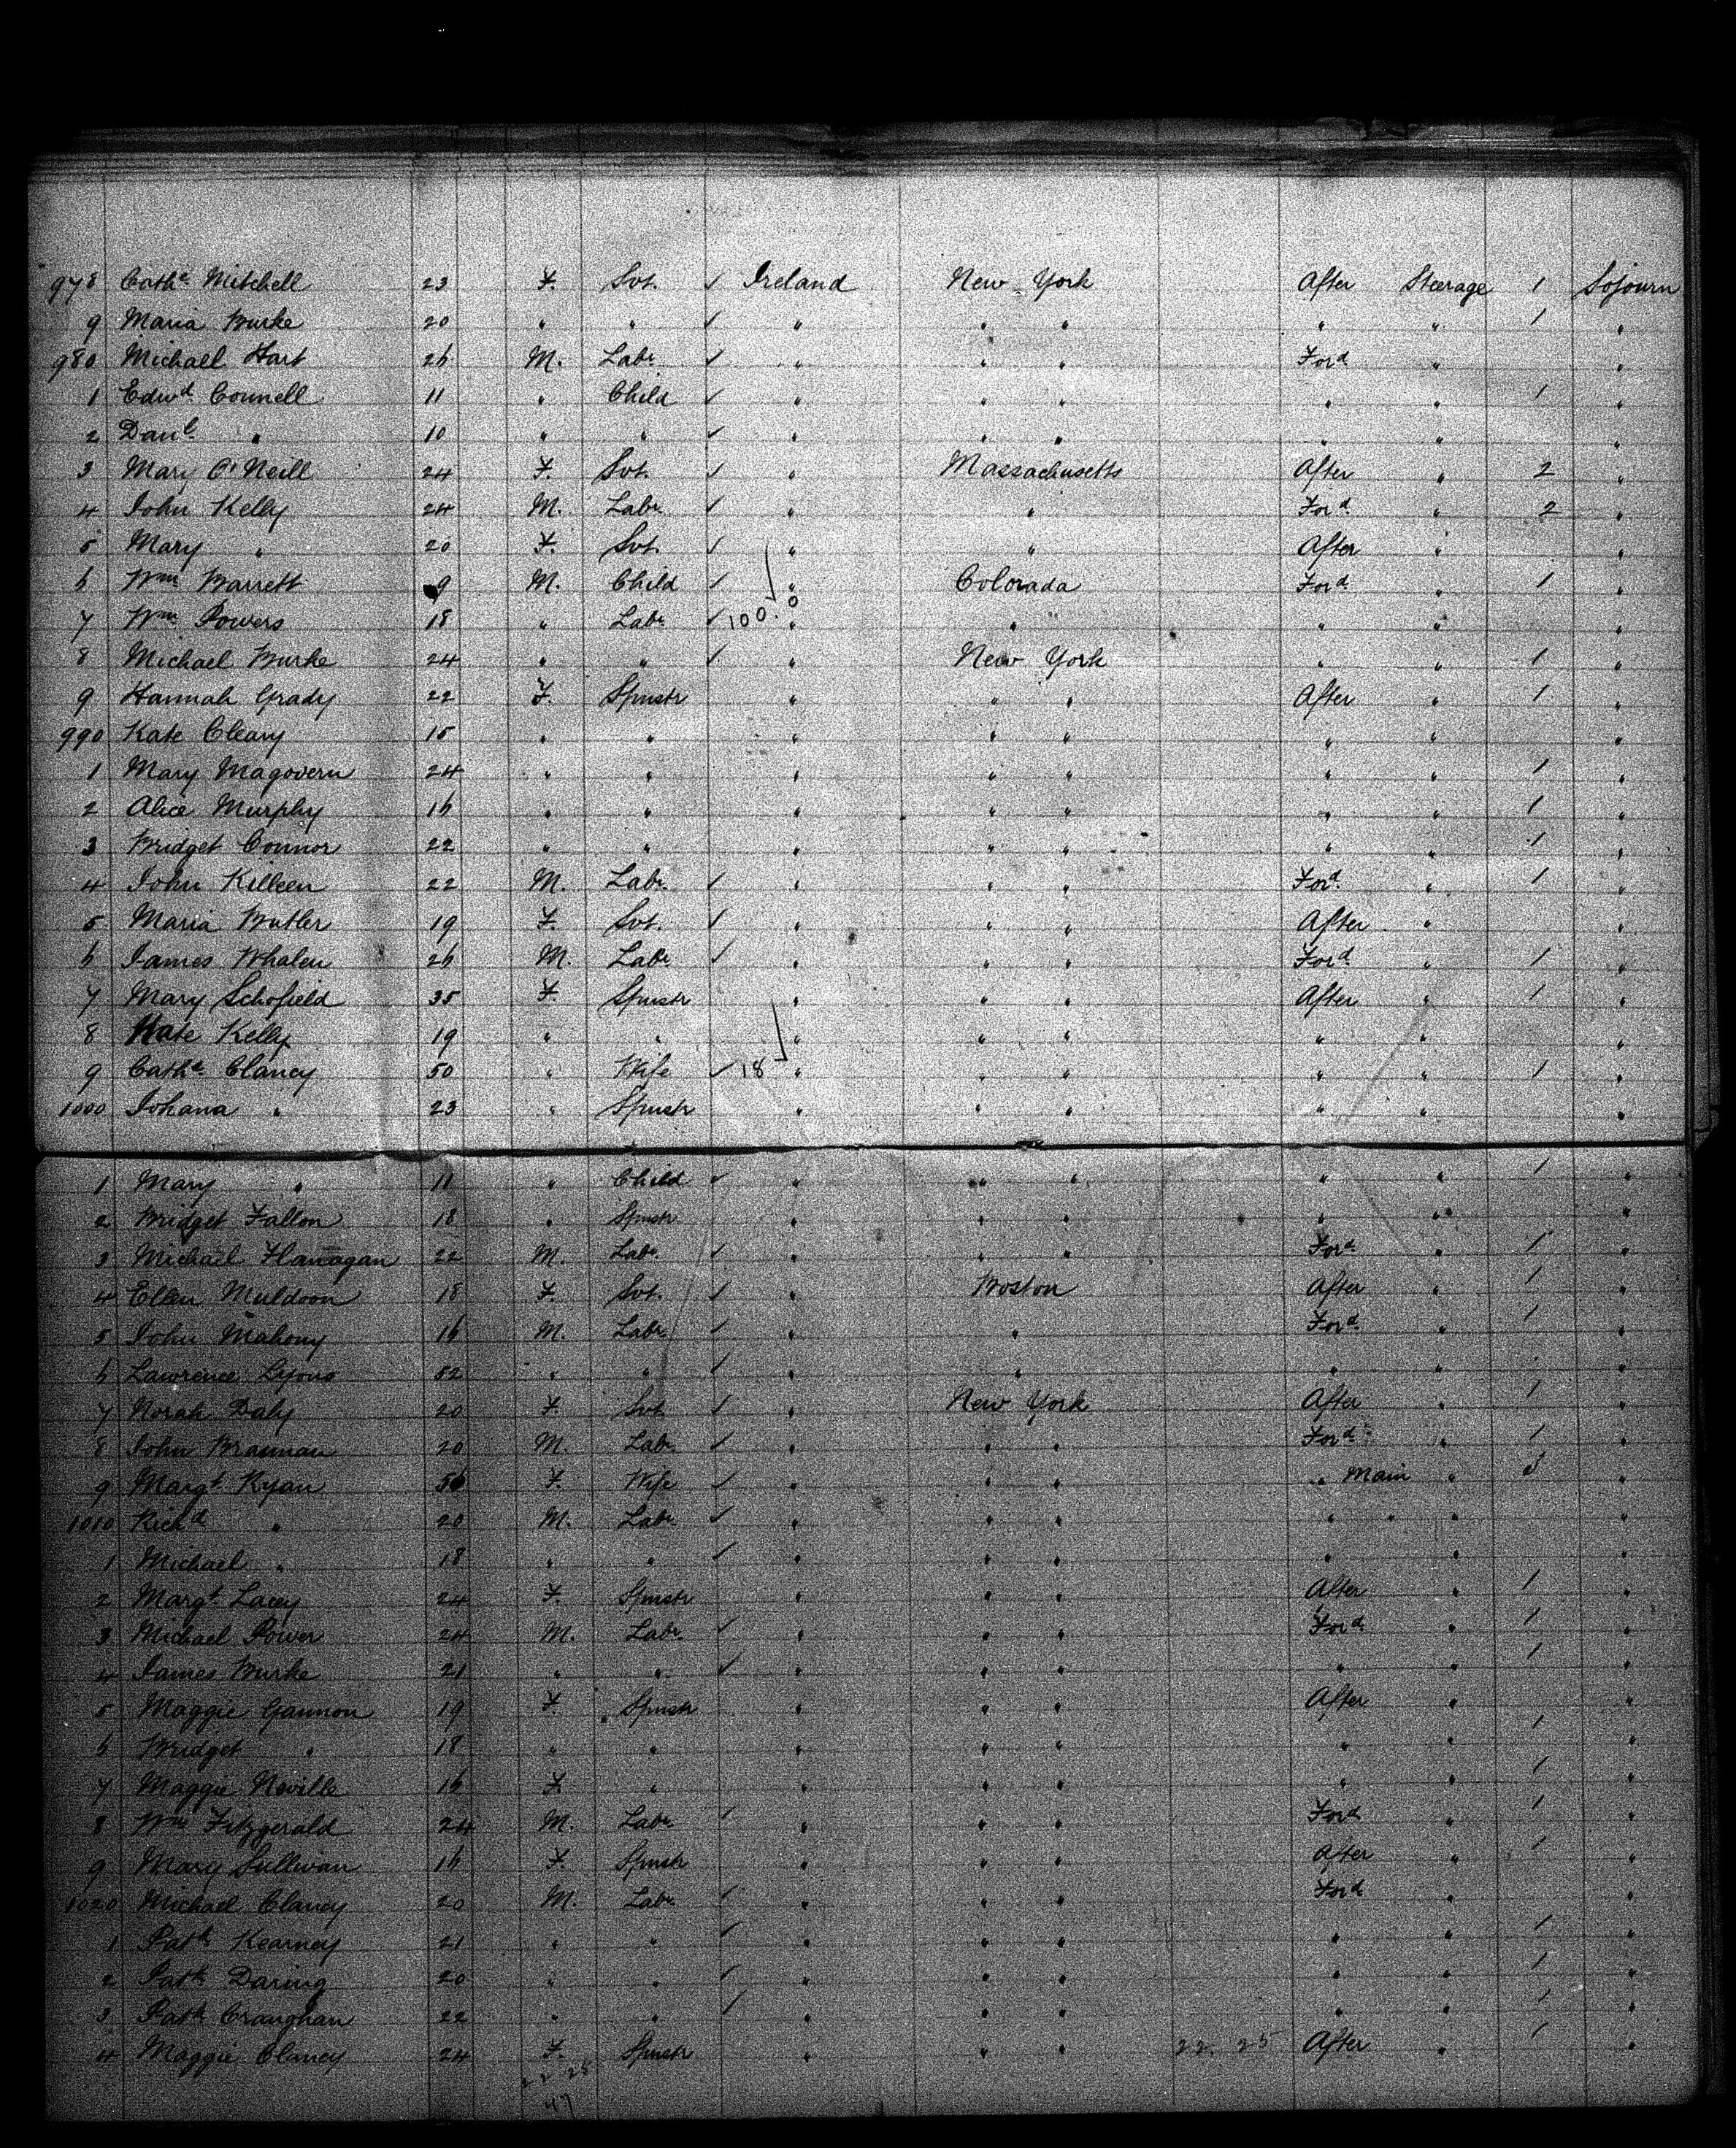 978 Cathe Mitchell 23 F. Svt. ✓ Ireland New York After Steerage 1 Sojourn
9 Maria Burke 20 " " ✓ " " " " " 1 "
980 Michael Hart 26 M. Labr ✓ " " " Ford " "
1 Edwd Connell 11 " Child ✓ " " " " " 1 "
2 Danl " 10 " " ✓ " " " " " "
3 Mary O'Neill 24 F. Svt. ✓ " Massachusetts After " 2 "
4 John Kelly 24 M. Labr ✓ " " Ford " 2 "
5 Mary " 20 F. Svt. ✓ " " After " "
6 Wm Barrett 9 M. Child ✓ " Colorada Ford " 1 "
7 Wm Powers 18 " Labr ✓ 100. " " " " "
8 Michael Burke 24 " " ✓ " New York " " 1 "
9 Hannah Grady 22 F. Spnstr " " " After " 1 "
990 Kate Cleary 15 " " " " " " " "
1 Mary Magovern 24 " " " " " " " 1 "
2 Alice Murphy 16 " " " " " " " 1 "
3 Bridget Connor 22 " " " " " " " 1 "
4 John Killeen 22 M. Labr ✓ " " " Ford " 1 "
5 Maria Butler 19 F. Svt. ✓ " " " After " "
6 James Whalen 26 M. Labr ✓ " " " Ford " 1 "
7 Mary Schofield 35 F. Spnstr " " " After " 1 "
8 Kate Kelly 19 " " " " " " " "
9 Cathe Clancy 50 " Wife ✓ 18 " " " " " 1 "
1000 Johana " 23 " Spnstr " " " " " "
1 Mary " 11 " Child ✓ " " " " " 1 "
2 Bridget Fallon 18 " Spnstr " " " " " "
3 Michael Flanagan 22 M. Labr ✓ " " " Ford " 1 "
4 Ellen Muldoon 18 F. Svt. ✓ " Boston After " 1 "
5 John Mahony 16 M. Labr ✓ " " Ford " 1 "
6 Lawrence Lyons 52 " " ✓ " " " " "
7 Norah Daly 20 F. Svt. ✓ " New York After " 1 "
8 John Brannan 20 M. Labr ✓ " " " Ford " 1 "
9 Margt Ryan 56 F. Wife ✓ " " " " Main " 3 "
1010 Richd " 20 M. Labr ✓ " " " " " " "
1 Michael " 18 " " ✓ " " " " " "
2 Margt Lacey 24 F. Spnstr " " " After " 1 "
3 Michael Power 24 M. Labr ✓ " " " Ford " 1 "
4 James Burke 21 " " ✓ " " " " " 1 "
5 Maggie Gannon 19 F. Spnstr " " " After " "
6 Bridget " 18 " " " " " " " 1 "
7 Maggie Neville 16 F. " " " " " " 1 "
8 Wm Fitzgerald 24 M. Labr ✓ " " " Ford " 1 "
9 Mary Sullivan 16 F. Spnstr " " " After " 1 "
1020 Michael Clancy 20 M. Labr ✓ " " " Ford " "
1 Patk Kearney 21 " " ✓ " " " " " 1 "
2 Patk Daring 20 " " ✓ " " " " " 1 "
3 Patk Craughan 22 " " ✓ " " " " " 1 "
4 Maggie Clancy 24 F. Spnstr " " " 22. 25 After " 1 "
22 25
47